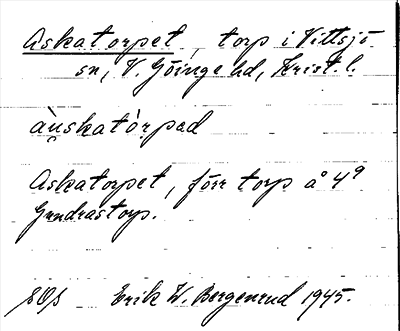 Askatorpet, torp i Vittsjö
sn, V. Göinge hd, Krist. l.
àu̯skatòr̥pad
Askatorpet, förr torp å 4⁹
Gundrastorp.
SOS Erik W. Bergenrud 1945.